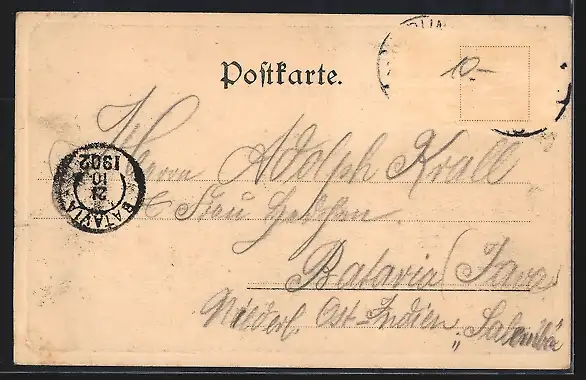 Postkarte.
10-
Herrn Adolph Krall
Batavia (Java)
Niederl. Ost-Indien „Salemba
BATAVIA
21
10
1902